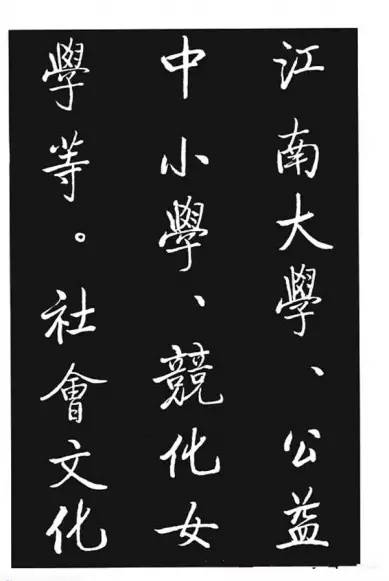 江南大學、公益
中小學、競化女
學等。社會文化